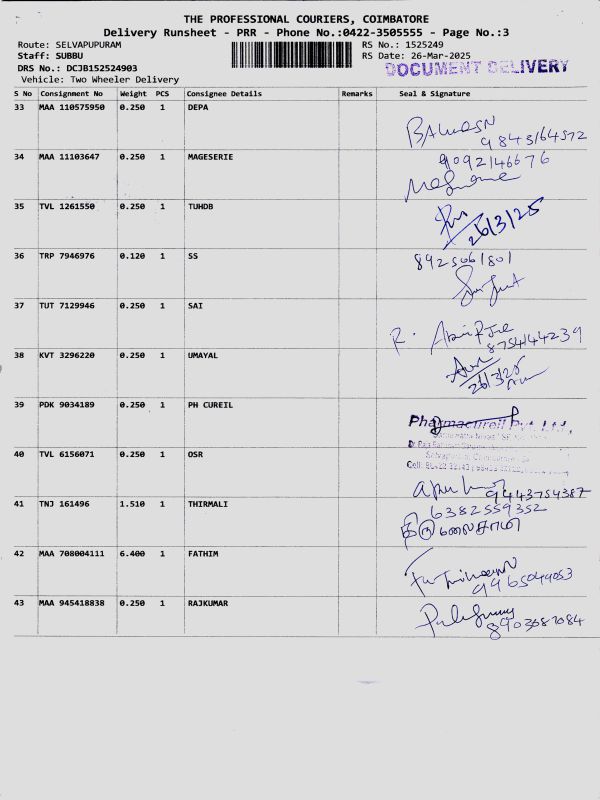 THE PROFESSIONAL COURIERS, COIMBATORE
Delivery Runsheet - PRR - Phone No.:0422-3505555 - Page No.:3
Route: SELVAPUPURAM RS No.: 1525249
Staff: SUBBU RS Date: 26-Mar-2025
DRS No.: DCJB152524903 DOCUMENT DELIVERY
Vehicle: Two Wheeler Delivery
S No Consignment No Weight PCS Consignee Details Remarks Seal & Signature
33 MAA 110575950 0.250 1 DEPA
9843164572
34 MAA 11103647 0.250 1 MAGESERIE 9092146676
35 TVL 1261550 0.250 1 TUHDB
26/3/25
36 TRP 7946976 0.120 1 SS
37 TUT 7129946 0.250 1 SAI
8754144239
38 KVT 3296220 0.250 1 UMAYAL
26/3/25
39 PDK 9034189 0.250 1 PH CUREIL
Pharmacureil Pvt. Ltd.,
40 TVL 6156071 0.250 1 OSR
9443754387
41 TNJ 161496 1.510 1 THIRMALI 6382559352
42 MAA 708004111 6.400 1 FATHIM
9965049053
43 MAA 945418838 0.250 1 RAJKUMAR
8903687084